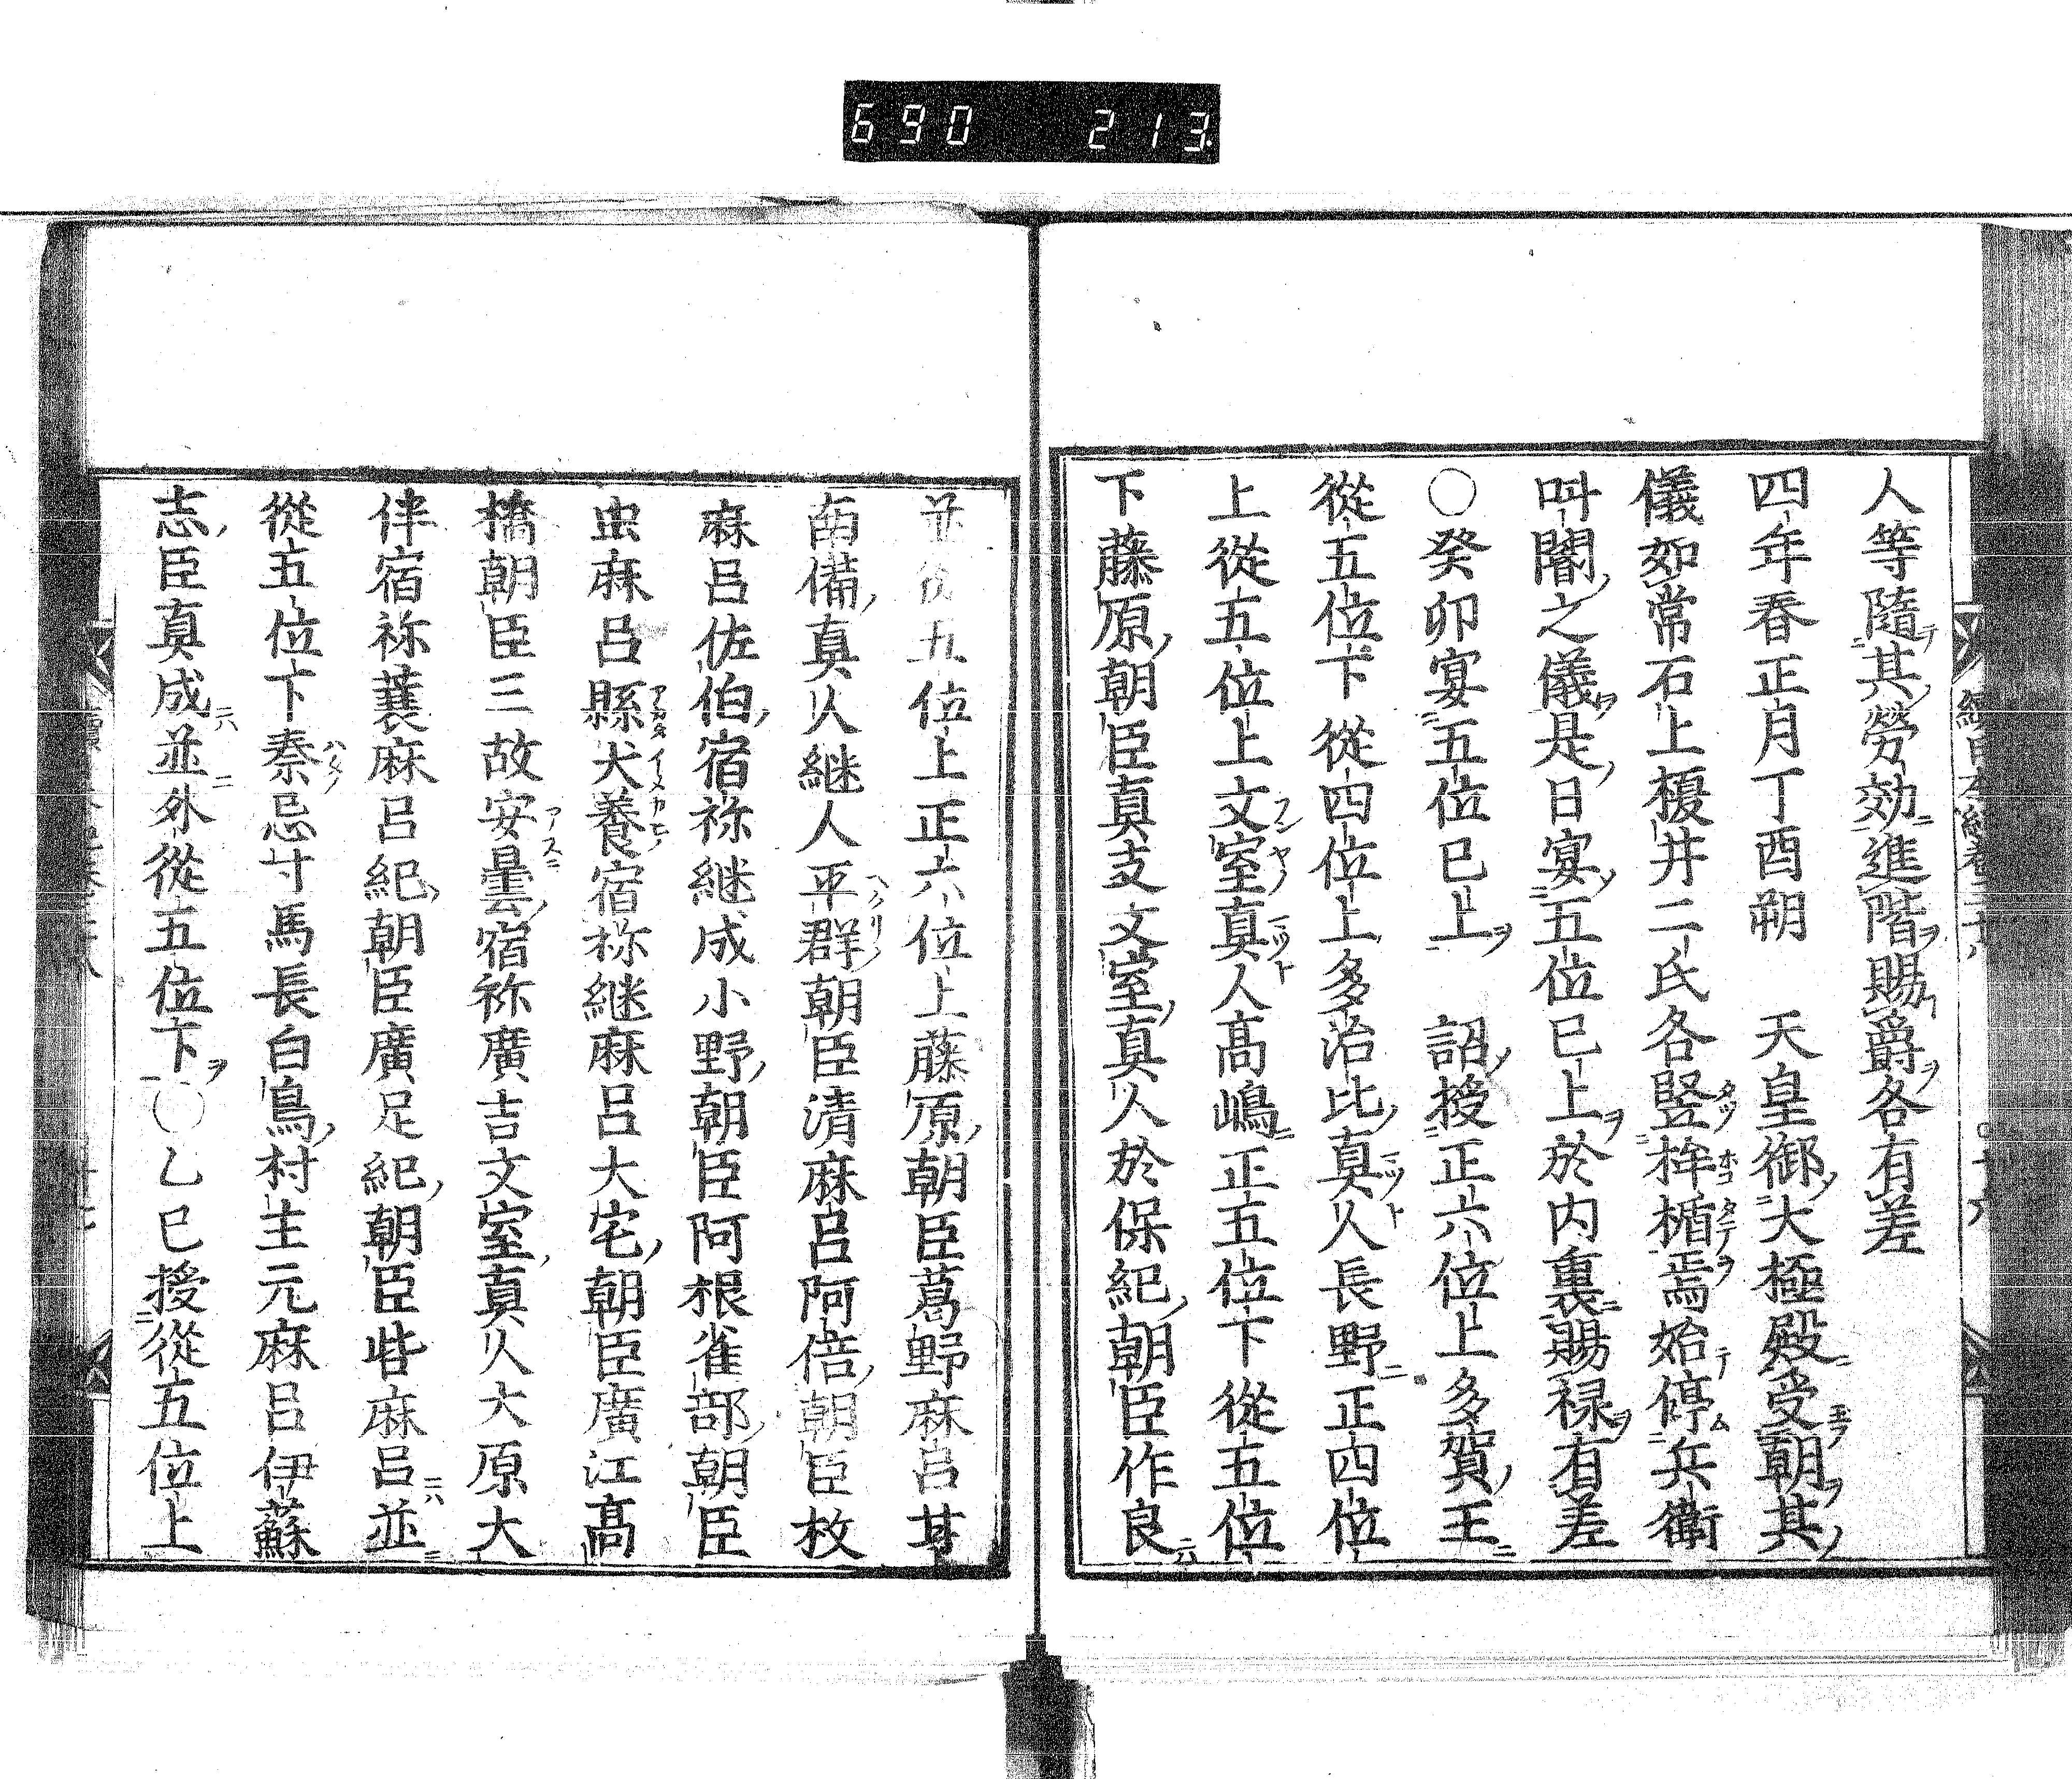 690 213
人等隨其勞効進階賜爵各有差
四年春正月丁酉朔　天皇御大極殿受朝其
儀如常石上榎井二氏各竪桙楯焉始停兵衛
呌閽之儀是日宴五位已上於内裏賜禄有差
○癸卯宴五位已上　詔授正六位上多賀王
從五位下從四位上多治比真人長野正四位
上從五位上文室真人髙嶋正五位下從五位
下藤原朝臣真友文室真人於保紀朝臣作良
並從五位上正六位上藤原朝臣葛野麻呂甘
南備真人継人平群朝臣清麻呂阿倍朝臣枚
麻呂佐伯宿祢継成小野朝臣阿根雀部朝臣
虫麻呂縣犬養宿祢継麻呂大宅朝臣廣江髙
橋朝臣三故安曇宿祢廣吉文室真人大原大
伴宿祢蓑麻呂紀朝臣廣足紀朝臣呰麻呂並
從五位下秦忌寸馬長白鳥村主元麻呂伊蘇
志臣真成並外從五位下○乙巳授從五位上